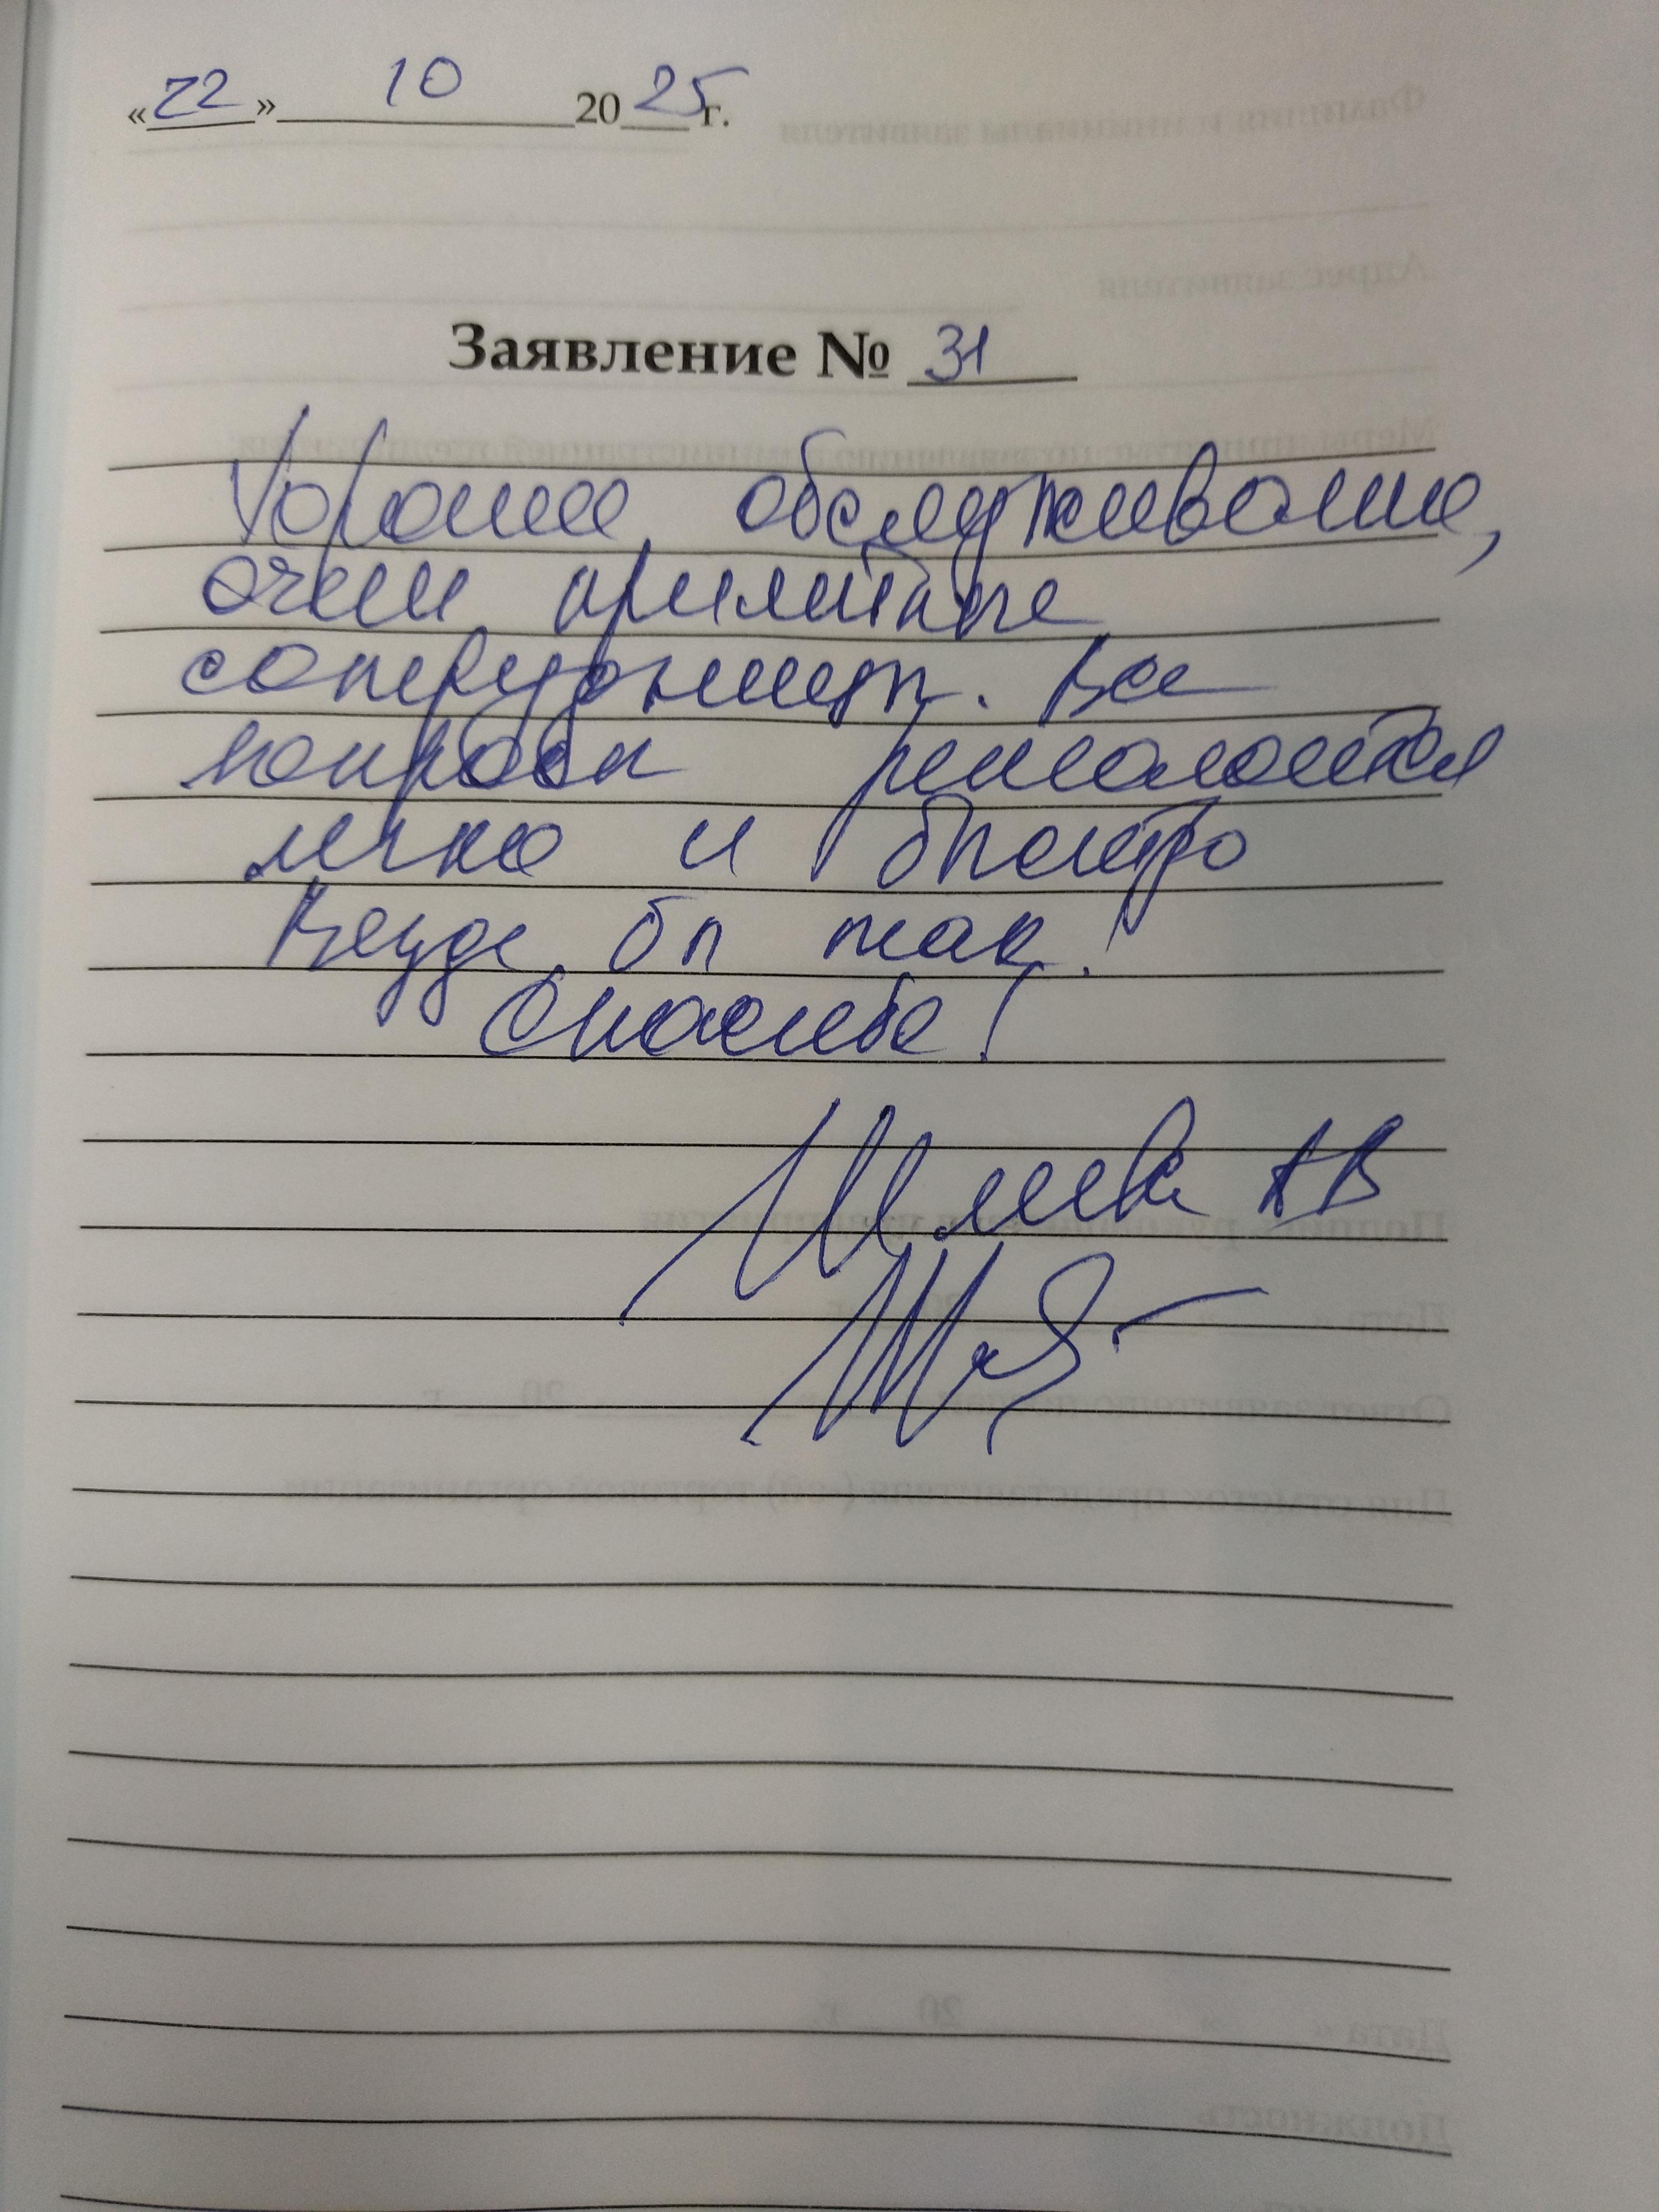 «22» 10 2025 г.
Заявление № 31
Хорошее обслуживание,
очень приятные
сотрудницы. Все
вопросы решаются
легко и быстро
Везде бы так!
Спасибо!
АВ